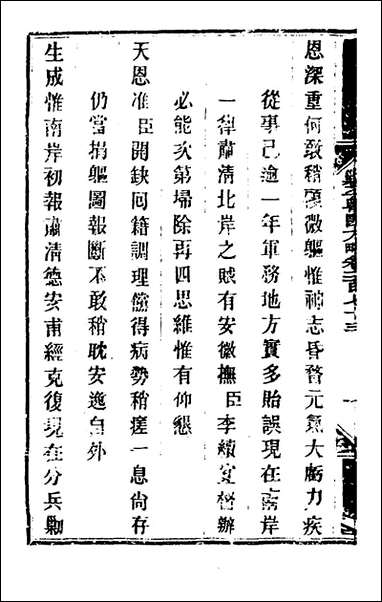 恩深重何敢稍顧微軀惟神志昏瞀元氣大虧力疾
從事已逾一年軍務地方實多貽誤現在南岸
一律肅清北岸之賊有安徽撫臣李續宜督辦
必能次第埽除再四思維惟有仰懇
天恩准臣開缺回籍調理儻得病勢稍瘥一息尚存
仍當捐軀圖報斷不敢稍耽安逸自外
生成惟南岸初報肅清德安甫經克復現在分兵勦